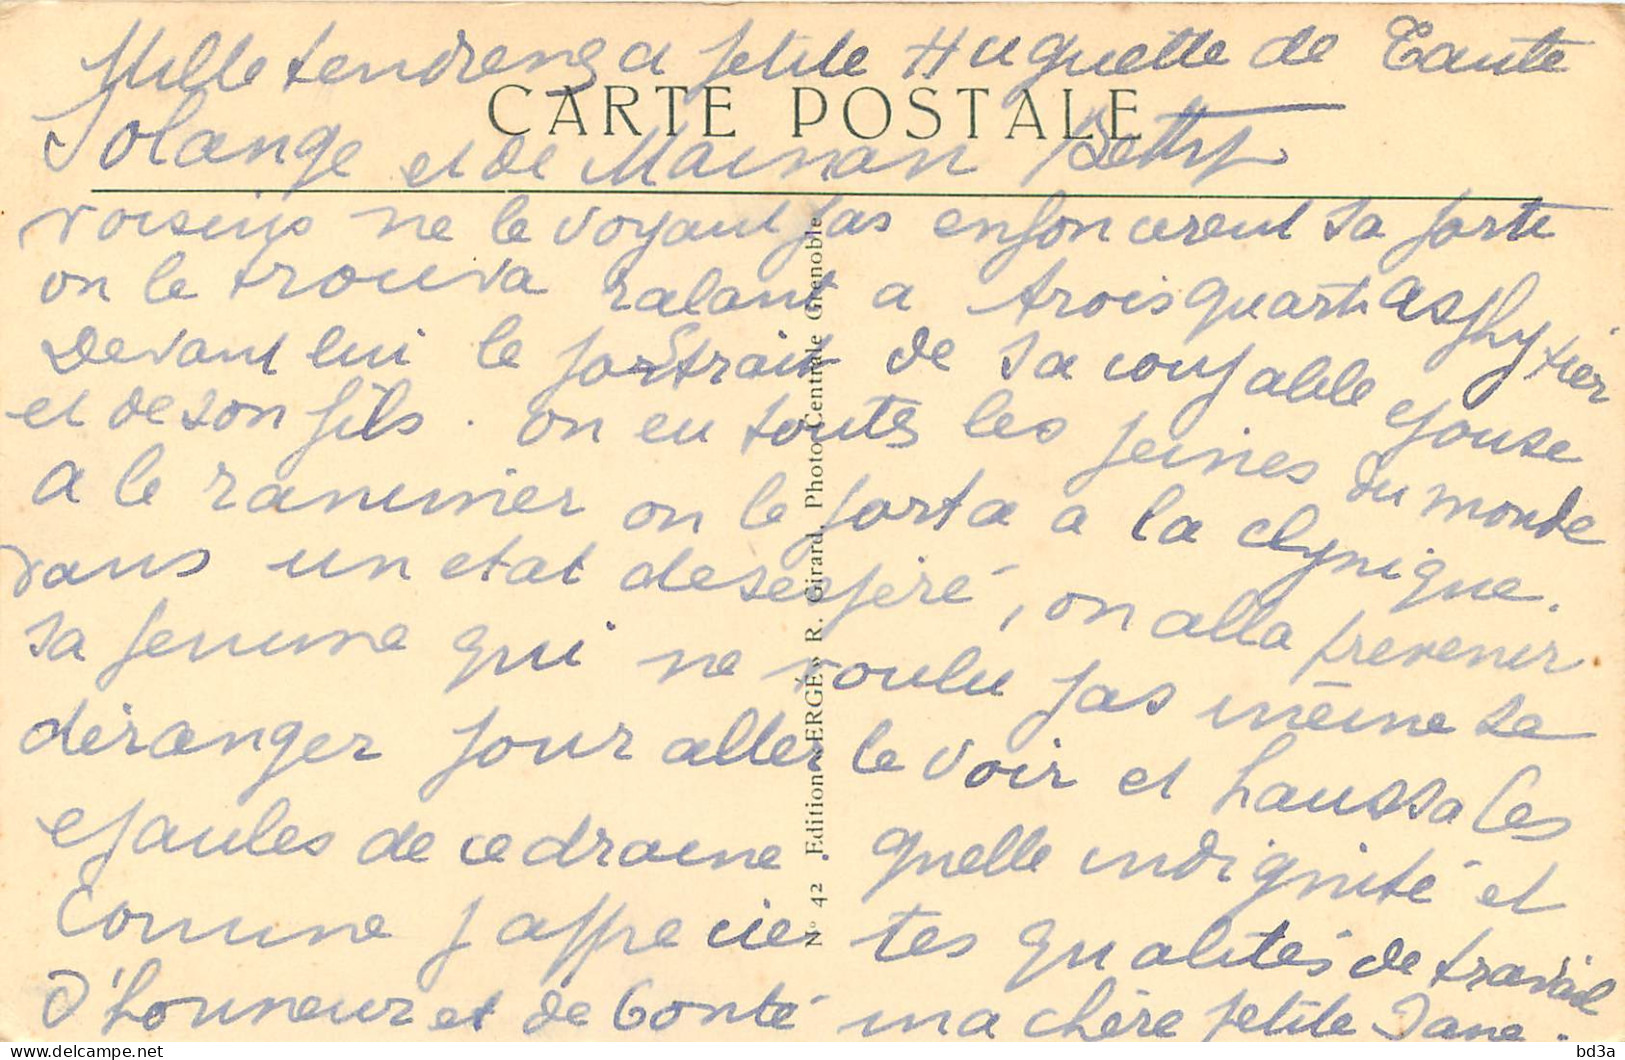 Mille tendres a petite Huguette de Tante
CARTE POSTALE
Solange et de Maman Betty
voisins ne le voyant pas enfoncerent sa porte
on le trouva ralant a trois quarts asphyxier
Devant lui le portrait de sa coupable epouse
et de son fils. on eu toutes les peines du monde
a le ranimer on le porta a la clynique.
dans un etat desesperé, on alla prevenir
sa femme qui ne voulu pas même se
déranger pour aller le voir et haussa les
epaules de ce drame. quelle indignité et
Comme j'apprecie tes qualités de travail
d'honneur et de bonté ma chère petite Jane.
N° 42 Edition « ERGÉ » R. Girard, Photo Centrale Grenoble
bd3a